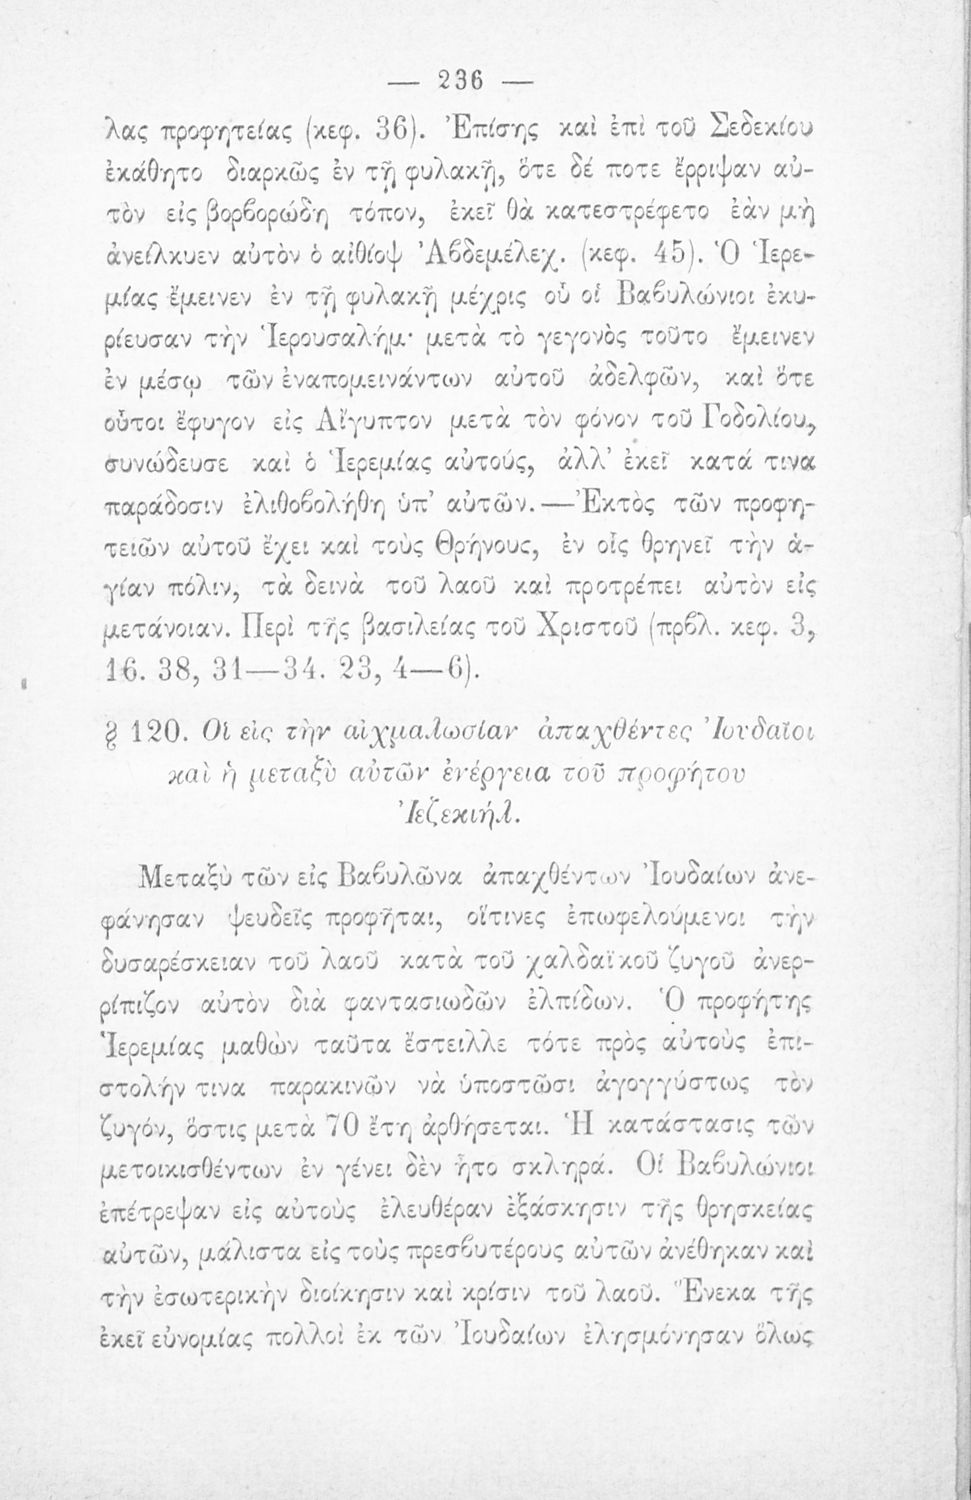 — 236 —
λας προφητείας (κεφ. 36). Ἐπίσης καὶ ἐπὶ τοῦ Σεδεκίου
ἐκάθητο διαρκῶς ἐν τῇ φυλακῇ, ὅτε δέ ποτε ἔρριψαν αὐ-
τὸν εἰς βορβορώδη τόπον, ἐκεῖ θὰ κατεστρέφετο ἐὰν μὴ
ἀνείλκυεν αὐτὸν ὁ αἰθίοψ Ἀβδεμέλεχ. (κεφ. 45). Ὁ Ἱερε-
μίας ἔμεινεν ἐν τῇ φυλακῇ μέχρις οὗ οἱ Βαβυλώνιοι ἐκυ-
ρίευσαν τὴν Ἱερουσαλήμ· μετὰ τὸ γεγονὸς τοῦτο ἔμεινεν
ἐν μέσῳ τῶν ἐναπομεινάντων αὐτοῦ ἀδελφῶν, καὶ ὅτε
οὗτοι ἔφυγον εἰς Αἴγυπτον μετὰ τὸν φόνον τοῦ Γοδολίου,
συνώδευσε καὶ ὁ Ἱερεμίας αὐτούς, ἀλλ’ ἐκεῖ κατά τινα
παράδοσιν ἐλιθοβολήθη ὑπ’ αὐτῶν. — Ἐκτὸς τῶν προφη-
τειῶν αὐτοῦ ἔχει καὶ τοὺς Θρήνους, ἐν οἷς θρηνεῖ τὴν ἁ-
γίαν πόλιν, τὰ δεινὰ τοῦ λαοῦ καὶ προτρέπει αὐτὸν εἰς
μετάνοιαν. Περὶ τῆς βασιλείας τοῦ Χριστοῦ (πρβλ. κεφ. 3,
16. 38, 31—34. 23, 4—6).
§ 120. Οἱ εἰς τὴν αἰχμαλωσίαν ἀπαχθέντες Ἰουδαῖοι
καὶ ἡ μεταξὺ αὐτῶν ἐνέργεια τοῦ προφήτου
Ἰεζεκιήλ.
Μεταξὺ τῶν εἰς Βαβυλῶνα ἀπαχθέντων Ἰουδαίων ἀνε-
φάνησαν ψευδεῖς προφῆται, οἵτινες ἐπωφελούμενοι τὴν
δυσαρέσκειαν τοῦ λαοῦ κατὰ τοῦ χαλδαϊκοῦ ζυγοῦ ἀνερ-
ρίπιζον αὐτὸν διὰ φαντασιωδῶν ἐλπίδων. Ὁ προφήτης
Ἱερεμίας μαθὼν ταῦτα ἔστειλλε τότε πρὸς αὐτοὺς ἐπι-
στολήν τινα παρακινῶν νὰ ὑποστῶσι ἀγογγύστως τὸν
ζυγόν, ὅστις μετὰ 70 ἔτη ἀρθήσεται. Ἡ κατάστασις τῶν
μετοικισθέντων ἐν γένει δὲν ἦτο σκληρά. Οἱ Βαβυλώνιοι
ἐπέτρεψαν εἰς αὐτοὺς ἐλευθέραν ἐξάσκησιν τῆς θρησκείας
αὐτῶν, μάλιστα εἰς τοὺς πρεσβυτέρους αὐτῶν ἀνέθηκαν καὶ
τὴν ἐσωτερικὴν διοίκησιν καὶ κρίσιν τοῦ λαοῦ. Ἕνεκα τῆς
ἐκεῖ εὐνομίας πολλοὶ ἐκ τῶν Ἰουδαίων ἐλησμόνησαν ὅλως